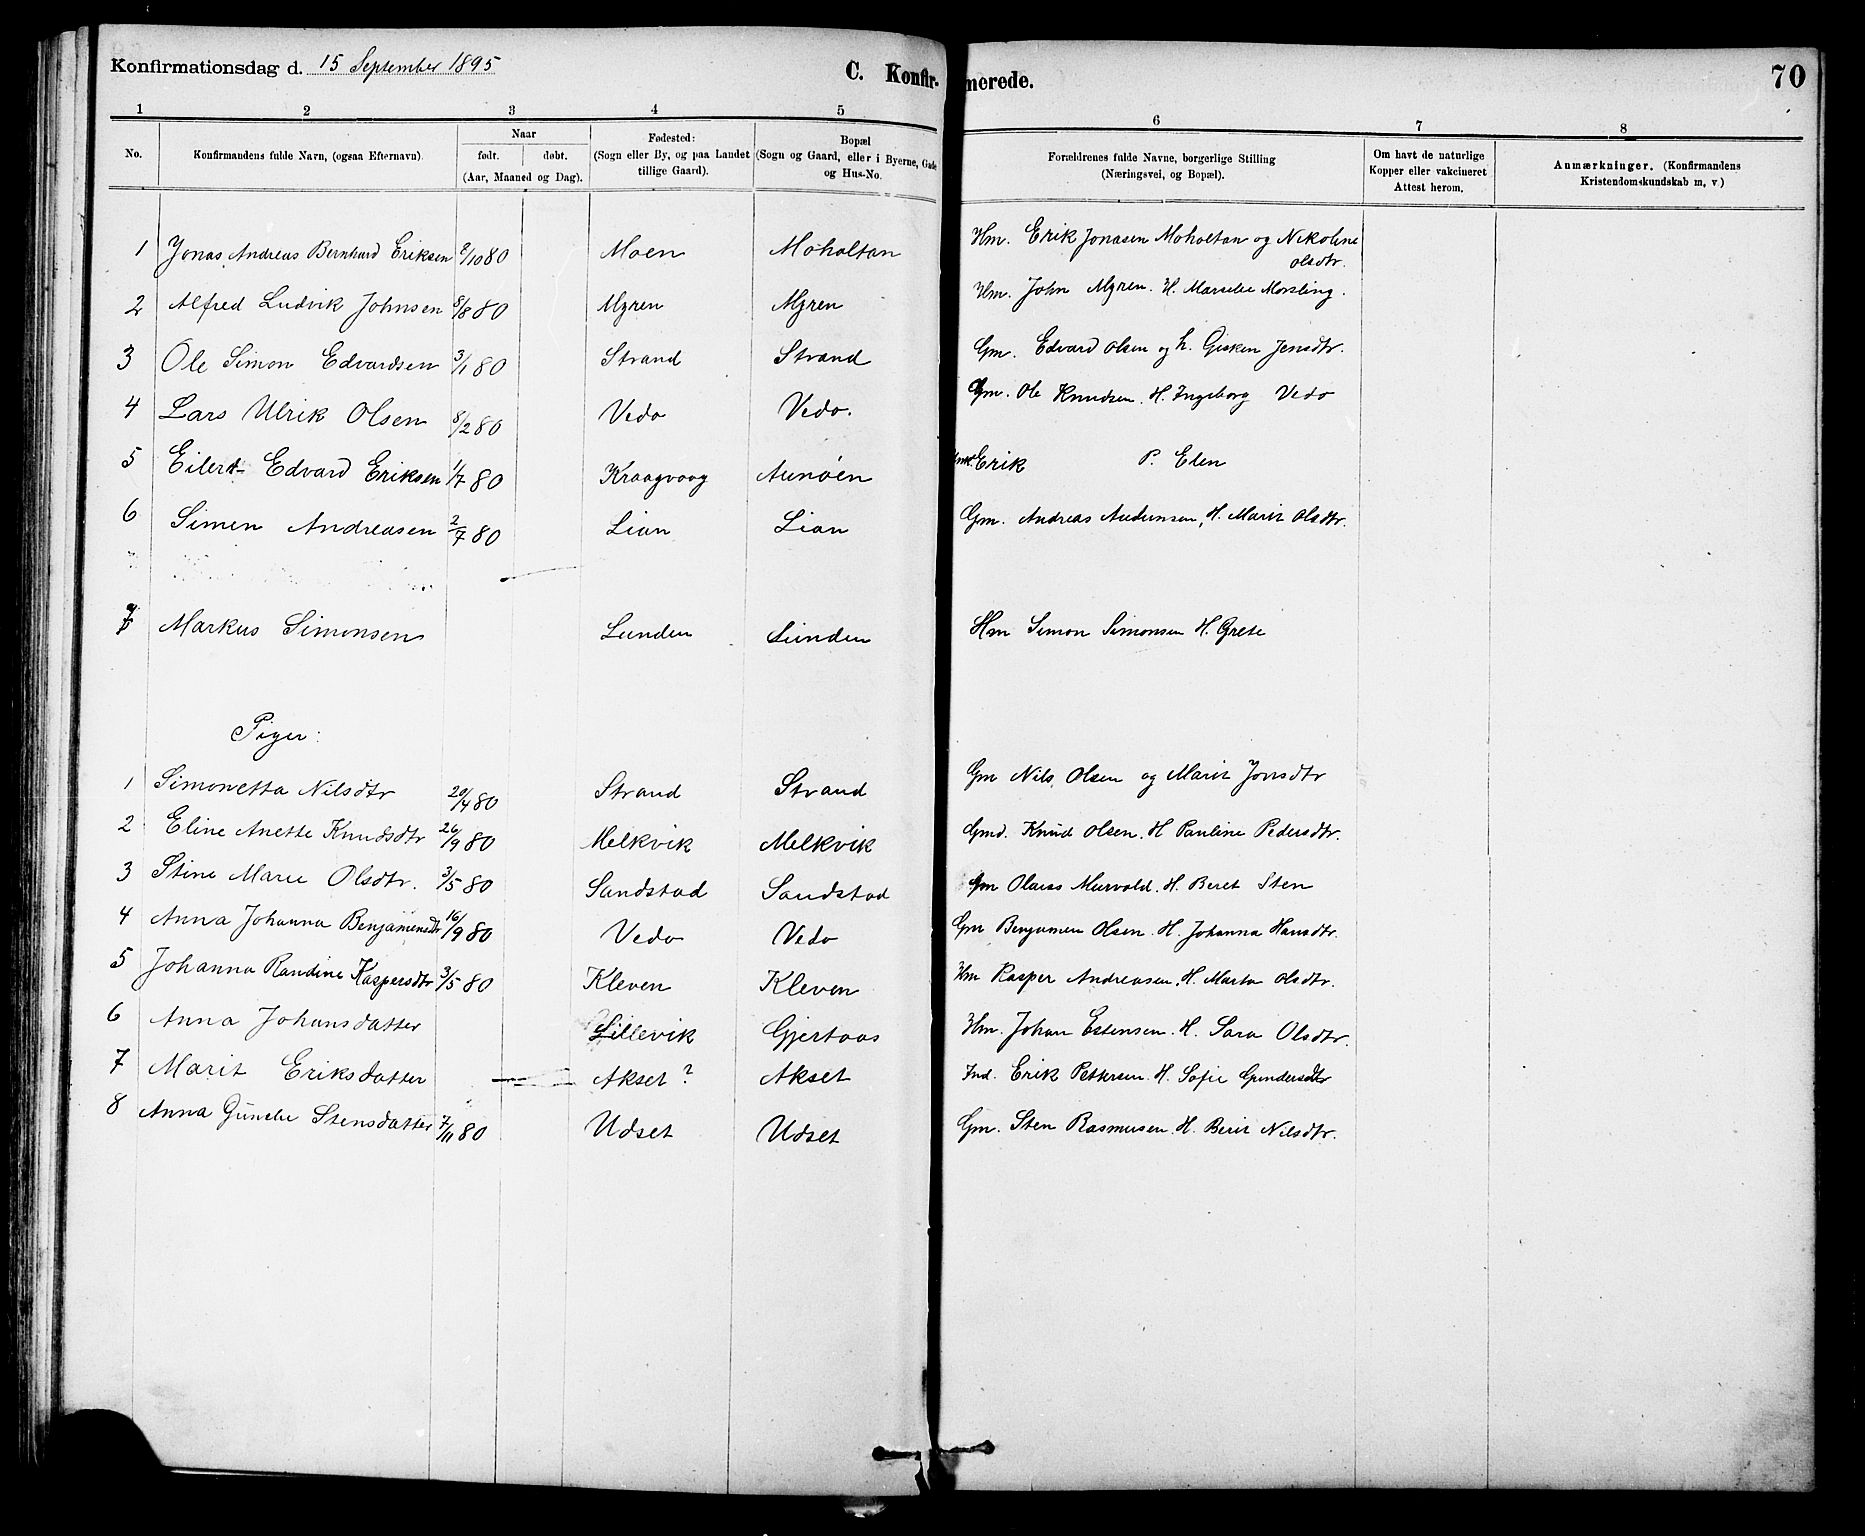 Konfirmationsdag d. 15 September 1895 C. Konfir- merede. 70
1 2 3 4 5 6 7 8
No. Konfirmandens fulde Navn, (ogsaa Efternavn). Naar født. døbt. (Aar, Maaned og Dag). Fødested: (Sogn eller By, og paa Landet tillige Gaard). Bopæl (Sogn og Gaard, eller i Byerne, Gade og Hus-No. Forældrenes fulde Navne, borgerlige Stilling (Næringsvei, og Bopæl). Om havt de naturlige Kopper eller vakcineret Attest herom. Anmærkninger. (Konfirmandens Kristendomskundskab m, v.)
1 Jonas Andreas Bernhard Eriksen /10 80 Moen Moholtan Hm. Erik Jonasen Moholtan og Nikoline
Olsdtr.
2 Alfred Ludvik Johnsen 8/8 80 Myren Myren Hm. John Myren. H. Marselie Morsling.
3 Ole Simon Edvardsen 3/1 80 Strand Strand Gm. Edvard Olsen og h. Gisken Jensdtr.
4 Lars Ulrik Olsen 8/2 80 Vedo Vedo. Gm. Ole Knudsen. H. Ingeborg Vedo
5 Eilert Edvard Eriksen 1/7 80 Kraagvaag Aunøen Erik P. Elen
6 Simen Andreasen 2/7 80 Lian Lian Gm. Andreas Audunsen, H. Marit Olsdtr.
7 Markus Simonsen Lunden Lunden Hm Simon Simonsen H. Grete
Piger:
1 Simonetta Nilsdtr 20/4 80 Strand Strand Gm Nils Olsen og Marit Jonsdtr
2 Eline Anette Knudsdtr 26/9 80 Melkvik Melkvik Gmd. Knud Olsen. H Pauline Pedersdtr.
3 Stine Marie Olsdtr. 3/5 80 Sandstad Sandstad Gm Olaus Murvold. H. Beret Sten
4 Anna Johanna Benjaminsdtr 16/9 80 Vedo Vedo Gm Benjamen Olsen. H. Johanna Hansdtr.
5 Johanna Randine Kaspersdtr 3/5 80 Kleven Kleven Hm Kasper Andreasen. H. Marta Olsdtr.
6 Anna Johansdatter Lillevik Gjertaas Hm. Johan Estensen. H. Sara Olsdtr.
7 Marit Eriksdatter Akset ? Akset Ind. Erik Pettersen. H. Sofie Gundersdtr
8 Anna Stensdatter 7/11 80 Udset Udset Gm. Sten Rasmusen. H. Berit Nilsdtr.